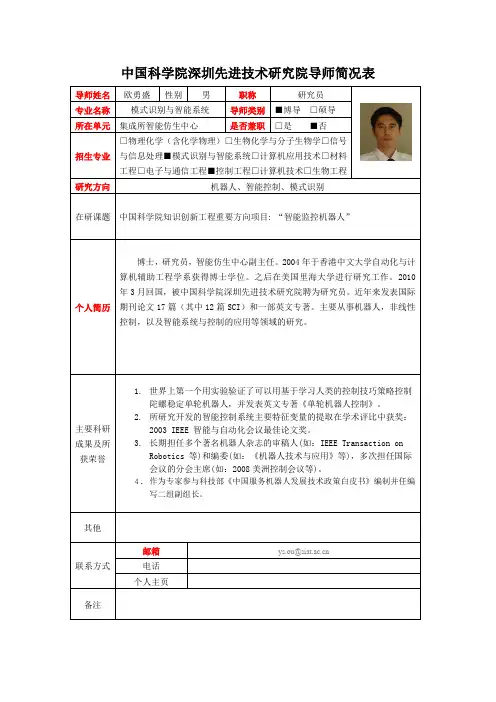 中国科学院深圳先进技术研究院导师简况表
导师姓名 欧勇盛 性别 男 职称 研究员
专业名称 模式识别与智能系统 导师类别 ■博导 □硕导
所在单元 集成所智能仿生中心 是否兼职 □是 ■否
招生专业
□物理化学(含化学物理)□生物化学与分子生物学□信号
与信息处理■模式识别与智能系统□计算机应用技术□材料
工程□电子与通信工程■控制工程□计算机技术□生物工程
研究方向 机器人、智能控制、模式识别
在研课题 中国科学院知识创新工程重要方向项目:“智能监控机器人”
个人简历
博士,研究员,智能仿生中心副主任。2004年于香港中文大学自动化与计
算机辅助工程学系获得博士学位。之后在美国里海大学进行研究工作。2010
年3月回国,被中国科学院深圳先进技术研究院聘为研究员。近年来发表国际
期刊论文17篇(其中12篇SCI)和一部英文专著。主要从事机器人,非线性
控制,以及智能系统与控制的应用等领域的研究。
主要科研
成果及所
获荣誉
1. 世界上第一个用实验验证了可以用基于学习人类的控制技巧策略控制
陀螺稳定单轮机器人,并发表英文专著《单轮机器人控制》。
2. 所研究开发的智能控制系统主要特征变量的提取在学术评比中获奖:
2003 IEEE 智能与自动化会议最佳论文奖。
3. 长期担任多个著名机器人杂志的审稿人(如:IEEE Transaction on
Robotics 等)和编委(如:《机器人技术与应用》等),多次担任国际
会议的分会主席(如:2008美洲控制会议等)。
4. 作为专家参与科技部《中国服务机器人发展技术政策白皮书》编制并任编
写二组副组长。
其他
联系方式
邮箱 ys.ou@siat.ac.cn
电话
个人主页
备注